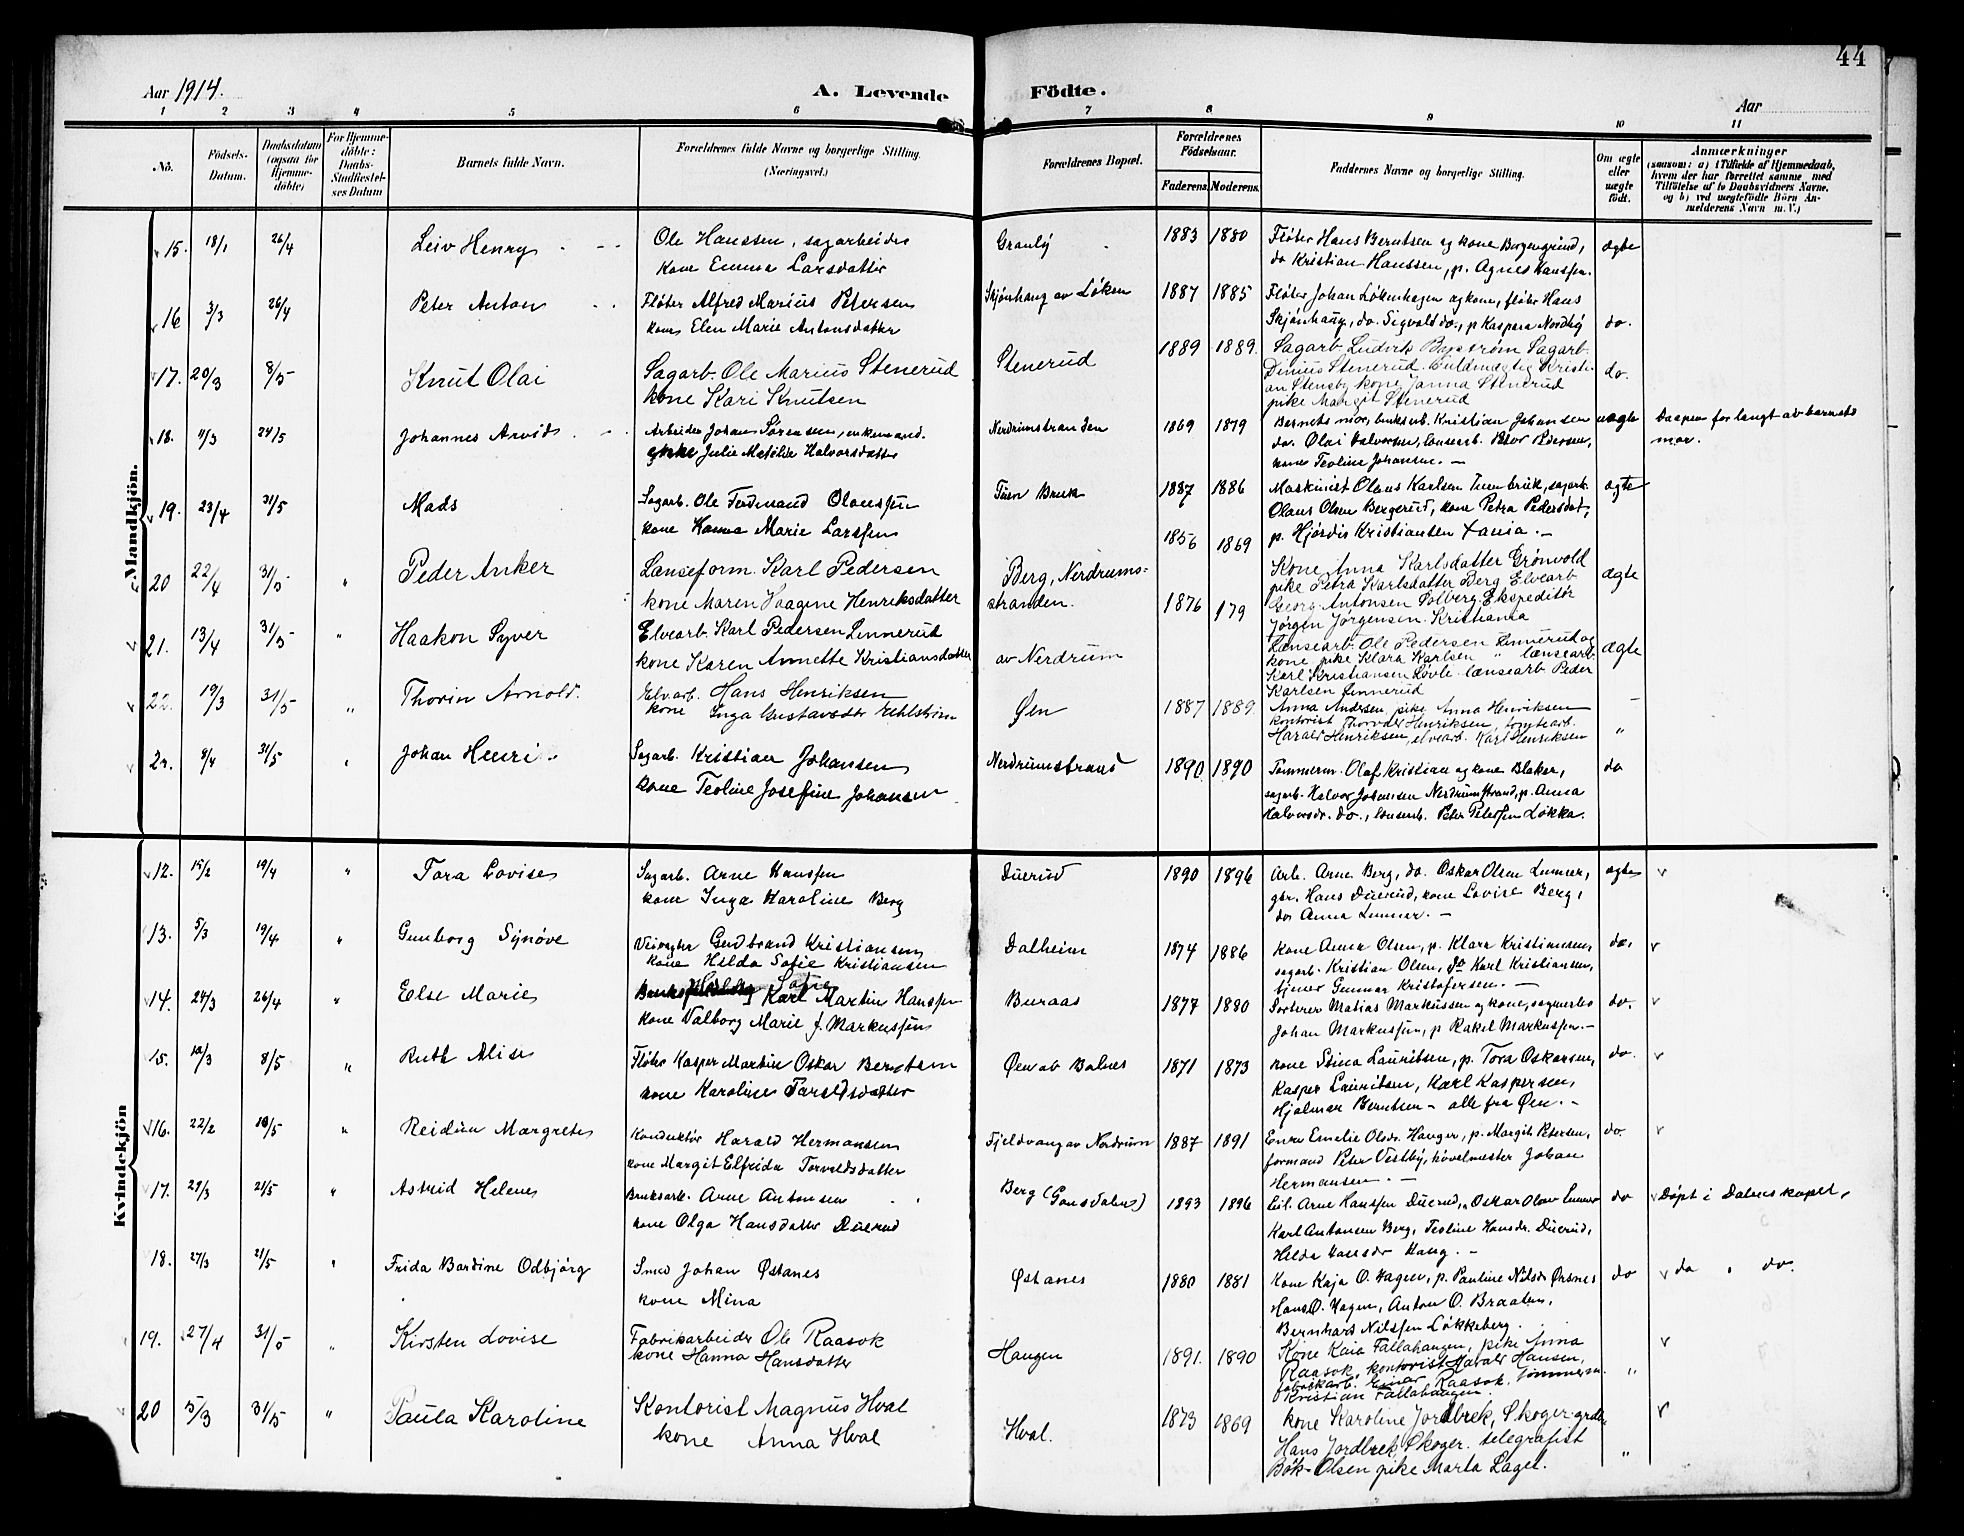 44
Aar 1914.
A. Levende
Födte.
Aar
1 2 3 4 5 6 7 8 9 10 11
No.
Födsels-
Datum.
Daabsdatum
(ogsaa for
Hjemme-
döbte)
For Hjemme-
döbte:
Daabs-
Stadfæstel-
ses Datum
Barnets fulde Navn.
Forældrenes fulde Navne og borgerlige Stilling.
(Næringsvei.)
Forældrenes Bopæl.
Forældrenes
Födselsaar.
Faderens. Moderens.
Faddernes Navne og borgerlige Stilling.
Om ægte
eller
uægte
födt.
Anmærkninger
(saasom: a) i Tilfælde af Hjemmedaab,
hvem der har forrettet samme med
Tilföielse af to Daabsvidners Navne,
og b) ved uægtefödte Börn An-
melderens Navn m. V.)
Mandkjön.
15. 18/1 26/4 Leiv Henry Ole Hanssen, sagarbeider Granly 1883 1880 Fløter Hans Berntsen og kone Borgengrind, ægte
kone Emma Larsdatter do Kristian Hanssen, p. Agnes Hanssen.
16 3/3 26/4 Peter Anton Fløter Alfred Marius Petersen Skjønhaug av Løken 1887 1885 Fløter Johan Løkenhagen og kone, fløter Hans
kone Elen Marie Antonsdatter Skjønhaug, do. Sigvald do., p Kaspara Nordby do.
17. 20/3 8/5 Knut Olai Sagarb. Ole Marius Stenerud Stenerud 1889 1889. Sagarb Ludvik Bystrøm Sagarb.
kone Kari Knutsen Dinius Stenerud. Fuldmægtig Kristi- do.
an Stensby kone Janna Stenerud
pike Margit Stenerud
18. 4/3 24/5 Johannes Arvid Arbeider Johan Sørensen, enkemand. Nerdrumstranden 1869 1879 Barnets mor, bruksarb. Kristian Johansen uægte Daapen forlangt av barnets
enke Julie Matilde Halvorsdatter do. Olai Halvorsen, lænsearb. Peder Pedersen, mor.
kone Teoline Johansen. —
19. 23/4 31/5 Mads Sagarb. Ole Ferdinand Olaussen Tuen Bruk 1887 1886 Maskinist Olaus Karlsen Tuen bruk, sagarb. ægte
kone Hanna Marie Larssen Olaus Olsen Bergerud, kone Petra Pedersdat,
p. Hjørdis Kristiansen Xania. —
20 22/4 31/5 " Peder Anker Lænseform. Karl Pedersen Berg, Nerdrums- 1856 1869 Kone Anna Karlsdatter Grønvold ægte
kone Maren Haagine Henriksdatter stranden. pike Petra Karlsdatter Berg Elvearb
Georg Antonsen Solberg. Ekspeditør
Jørgen Jørgensen. Kristiania
21. 13/4 31/5 " Haakon Syver Elvearb. Karl Pedersen Linnerud av Nerdrum 1876 179 Lænsearb. Ole Pedersen Linnerud og ægte
kone Karen Annette Kristiansdatter kone pike Klara Karlsen " lænsearb.
Karl Kristiansen Løvle. lænsearb Peder
Karlsen Linnerud
22. 19/3 31/5 " Thorin Arnold. Elvarb. Hans Henriksen Øen 1887 1889. Anna Andersen pike Anna Henriksen —
kone Inga Gustavsdtr kontorist Thorvder Henriksen, tomtearb.
Harald Henriksen, elvearb. Karl Henriksen "
9/4 31/5 Johan Henri Sagarb. Kristian Johansen Nerdrumstrand 1890 1890 Tømmerm. Olaf Kristian og kone Blaker, do
kone Teoline Josefine Johansen sagarb. Halvor Johansen Nerdrumstrand, p. Anna
Halvorsdr. do., lænsearb. Peter Petersen Løkka.
Kvindekjön
12. 15/2 19/4 " Tora Lovise Sagarb. Arne Hanssen Duerud 1890 1896 Arb. Arne Berg, do. Oskar Olsen Lunner, ægte
kone Inga Karoline Berg gbr. Hans Duerud, kone Lovise Berg,
do Anna Lunner. —
13. 5/3 19/4 " Gunborg Synøve Veivogter Gudbrand Kristiansen Dalheim 1874 1886 Kone Anna Olsen, p. Klara Kristiansen, do.
kone Hilda Sofie Kristiansen sagarb. Kristian Olsen, do Karl Kristiansen,
tjener Gunnar Kristofersen. —
14. 24/3 26/4 " Else Marie Karl Martin Hanssen Buraas 1877 1880 Sorterer Matias Markussen og kone, sagarbei do.
kone Valborg Marie f. Markussen Johan Markussen, p Rakel Markussen. —
15. 10/3 8/5 " Ruth Alise Fløter Kasper Martin Oskar Berntsen Øen ab Balnes 1871 1873 Kone Stina Lauritsen, p. Tora Oskarsen, do.
kone Karoline Taraldsdatter Kasper Lauritsen, Karl Kaspersen,
Hjalmar Berntsen — alle fra Øen. —
16. 22/2 10/5 " Reidun Margrete Konduktør Harald Hermansen Fjeldvang av Nerdrum 1887 1891 Enke Emelie Olsdr. Hauger, p. Margit Petersen, do.
kone Margit Elfrida Torvaldsdatter formand Peter Vestby, høvelmester Johan
Hermansen. —
17. 29/3 21/5 " Astrid Helene Bruksarb. Arne Antonsen Berg (Gansdalen) 1893 1896 Arne Hanssen Duerud, Oskar Olsen Lunner do Døpt i Dalens kapel,
kone Olga Hansdatter Duerud Karl Antonsen Berg, Teoline Hansdr. Duerud,
Hilda Hansdr Haug. —
18. 27/3 21/5 " Frida Bardine Odbjørg Smed Johan Østanes Østanes 1880 1881 Kone Kaja O. Hagen, p. Pauline Nilsdr Ørsnes do do " do.
kone Mina Hans O. Hagen, Anton O. Braaten,
Bernhard Nilssen Løkkeberg.
19. 27/4 31/5 " Kirsten Lovise Fabrikarbeider Ole Raasok Haugen 1891. 1890 Kone Kaia Fallahaugen, pike Anna
kone Hanna Hansdatter Raasok, kontorist Harald Hansen, "
fabrikarb. Einar Raasok. tømmerm.
Kristian Fallahaugen.
20 5/3 31/5 " Paula Karoline Kontorist Magnus Hval Hval. 1873 1869 kone Karoline Jordbrek, Skoger grdbr
kone Anna Hval Hans Jordbrek, Skoger. telegrafist "
Bøk-Olsen pike Marta Lagel.